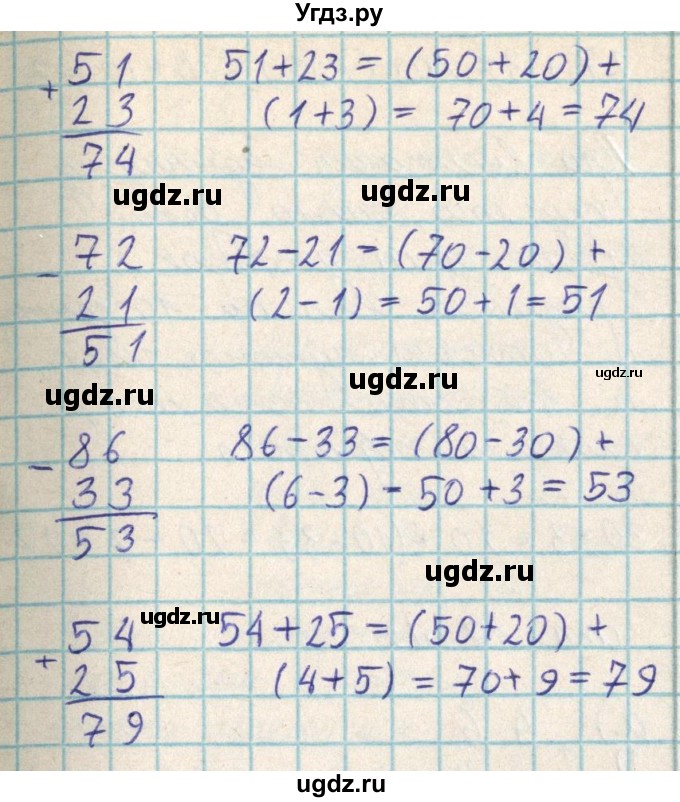 Угдз.ру
+ 51   51+23 = (50+20)+
23   (1+3) = 70+4 = 74
74
ugdz.ru   ugdz.ru
- 72   72-21 = (70-20)+
21   (2-1) = 50+1 = 51
51
ugdz.ru   ugdz.ru   ugdz.ru
- 86   86-33 = (80-30)+
33   (6-3) - 50+3 = 53
53
ugdz.ru
ugdz.ru
+ 54   54+25 = (50+20)+
25   (4+5) = 70+9 = 79
79
ugdz.ru